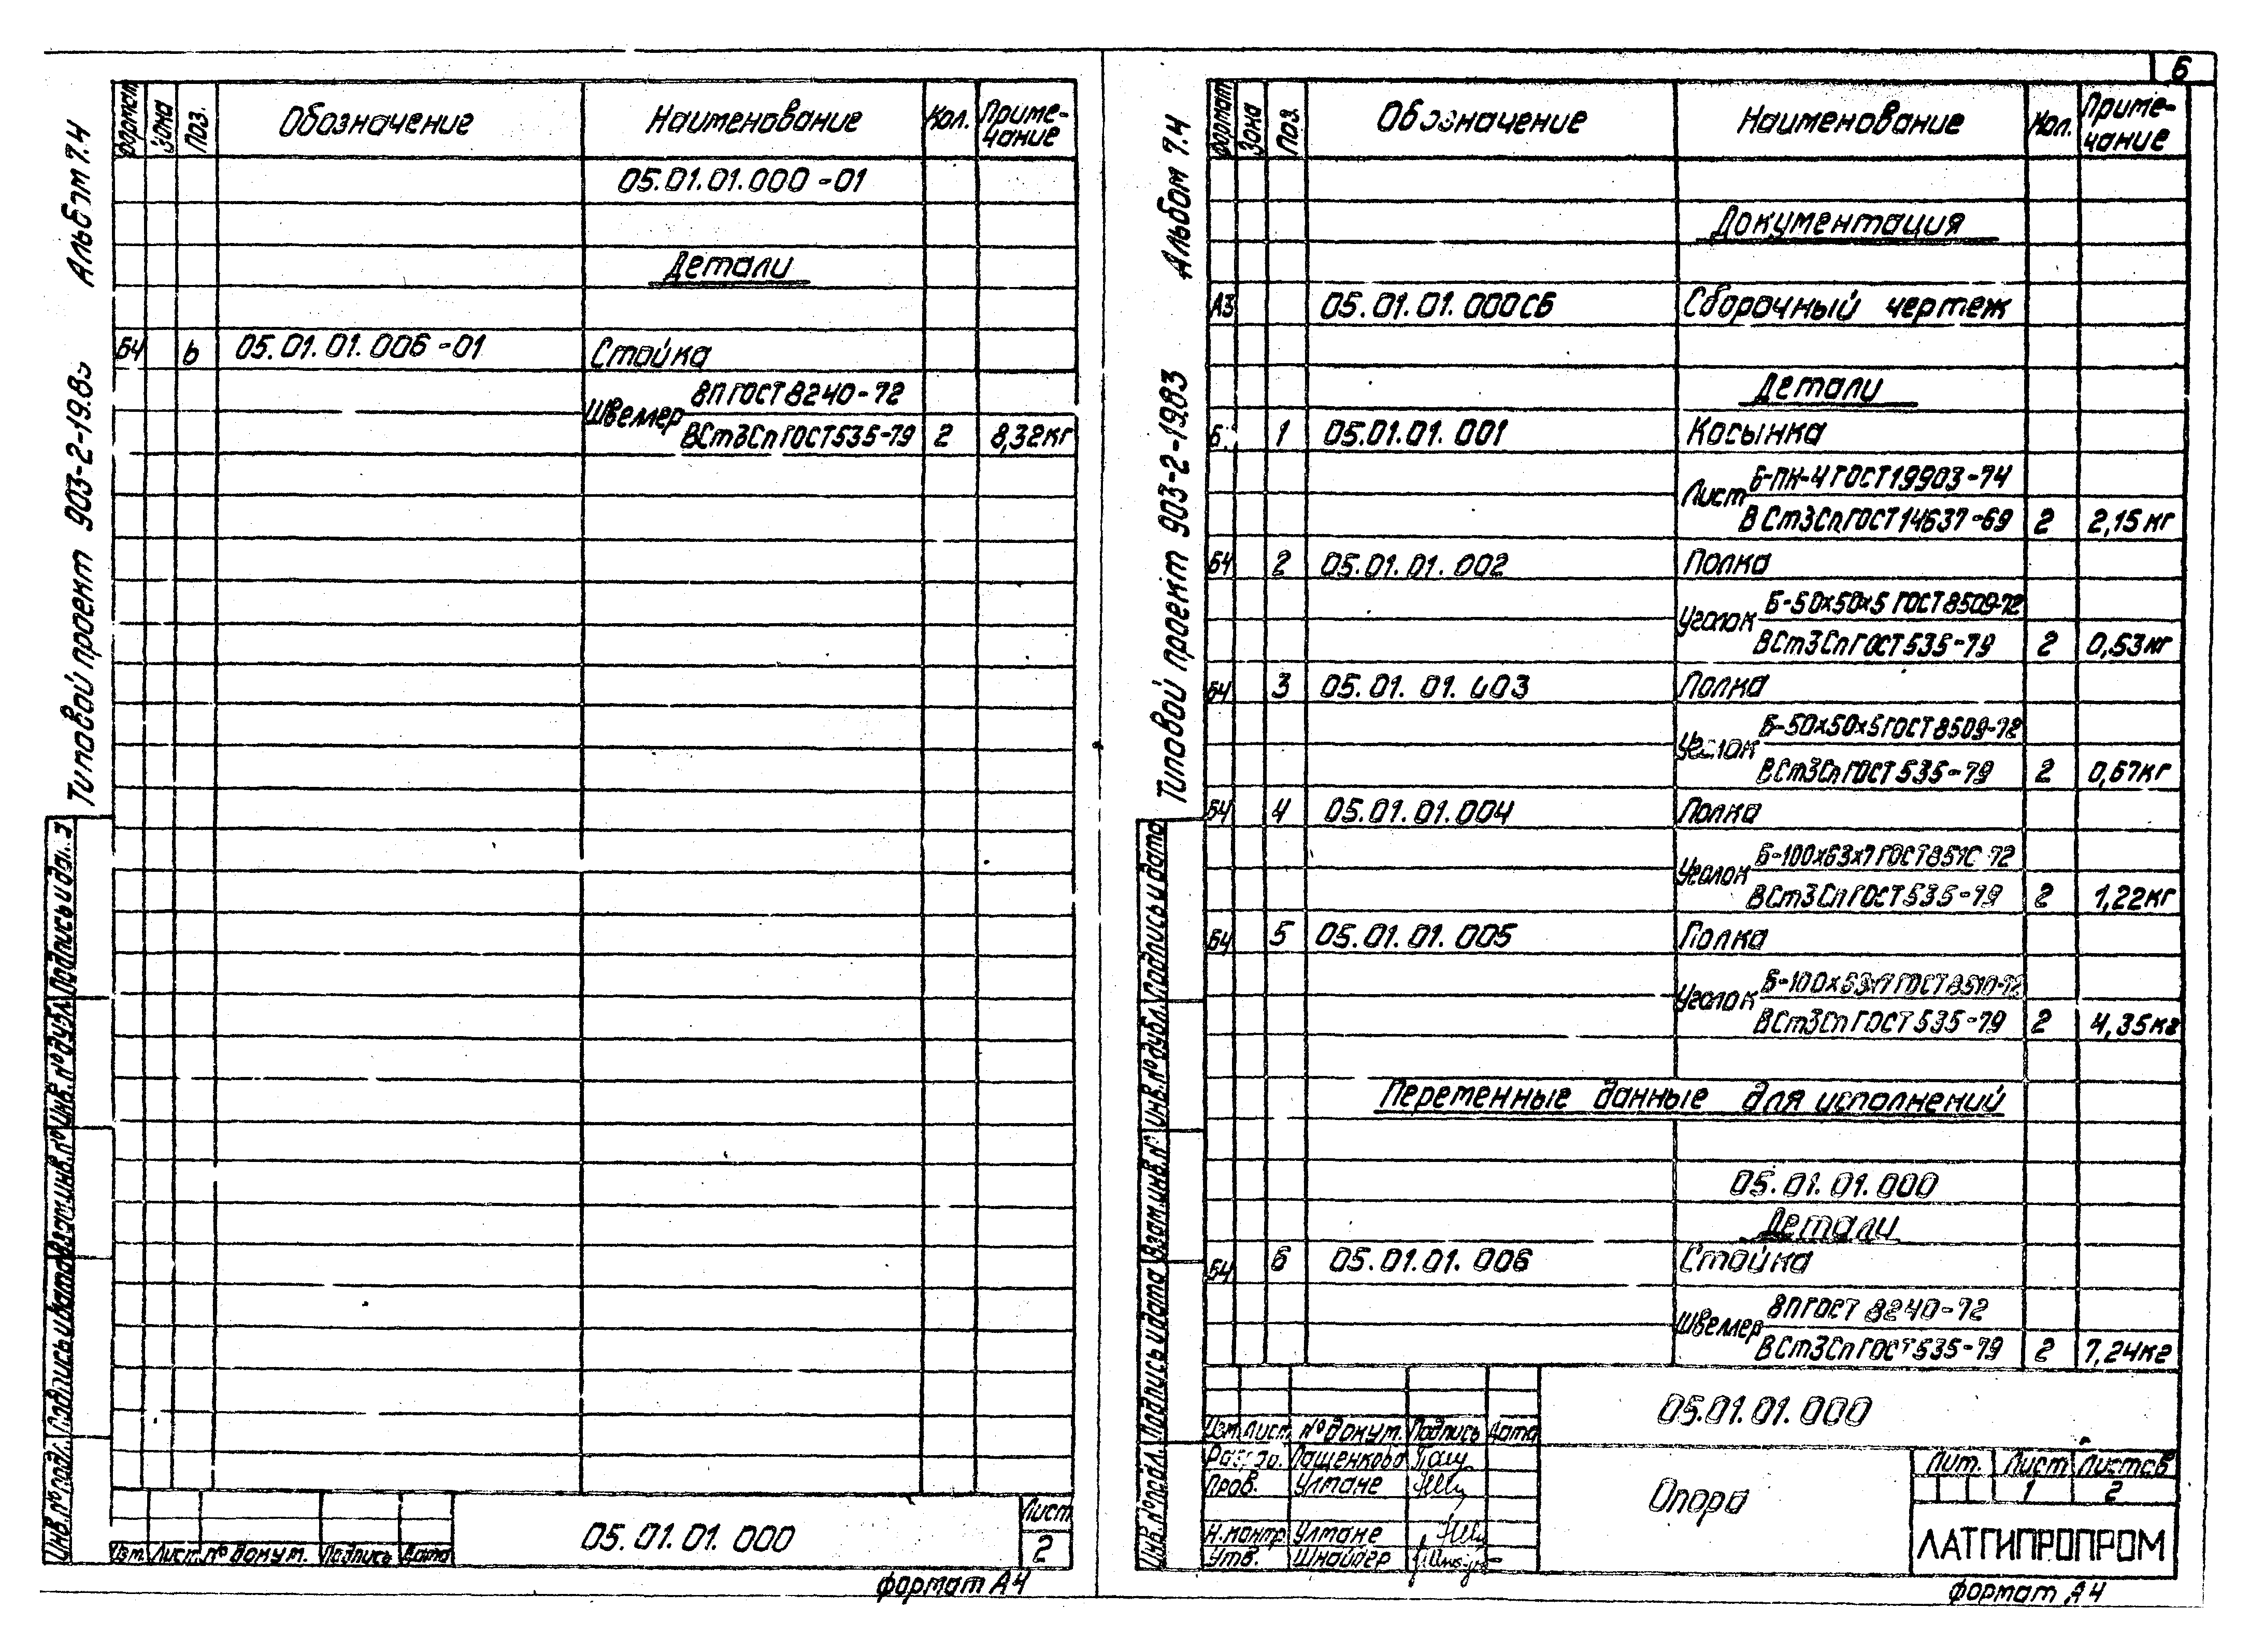 Альбом 7.4
Типовой проект 903-2-19.83
Формат Зона Поз. Обозначение Наименование Кол. Приме-
чание
05.01.01.000-01
Детали
БЧ 6 05.01.01.006-01 Стойка
8П ГОСТ 8240-72
Швеллер
ВСт3Сп ГОСТ 535-79 2 8,32кг
Подпись и дата
Инв.№ дубл.
Взам.инв.№
Подпись и дата
Инв.№ подл.
Изм. Лист № докум. Подпись Дата
05.01.01.000
Лист
2
Формат А4
6
Альбом 7.4
Типовой проект 903-2-19.83
Формат Зона Поз. Обозначение Наименование Кол. Приме-
чание
Документация
А3 05.01.01.000СБ Сборочный чертеж
Детали
Б 1 05.01.01.001 Косынка
Б-ПН-4 ГОСТ 19903-74
Лист
ВСт3Сп ГОСТ 14637-69 2 2,15кг
БЧ 2 05.01.01.002 Полка
Б-50х50х5 ГОСТ 8509-72
Уголок
ВСт3Сп ГОСТ 535-79 2 0,53кг
БЧ 3 05.01.01.003 Полка
Б-50х50х5 ГОСТ 8509-72
Уголок
ВСт3Сп ГОСТ 535-79 2 0,67кг
БЧ 4 05.01.01.004 Полка
Б-100х63х7 ГОСТ 8510-72
Уголок
ВСт3Сп ГОСТ 535-79 2 1,22кг
БЧ 5 05.01.01.005 Полка
Б-100х63х7 ГОСТ 8510-72
Уголок
ВСт3Сп ГОСТ 535-79 2 4,35кг
Переменные данные для исполнений
05.01.01.000
Детали
БЧ 6 05.01.01.006 Стойка
8П ГОСТ 8240-72
Швеллер
ВСт3Сп ГОСТ 535-79 2 7,24кг
Подпись и дата
Инв.№ дубл.
Взам.инв.№
Подпись и дата
Инв.№ подл.
Изм. Лист № докум. Подпись Дата
Разраб. Пащенкова
Пров. Улмане
Н.контр. Улмане
Утв. Шнайдер
05.01.01.000
Опора
Лит. Лист Листов
1 2
ЛАТГИПРОПРОМ
Формат А4